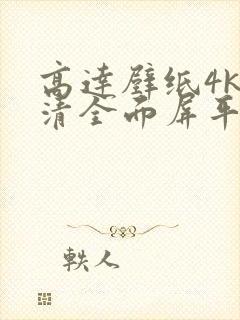 高達壁纸4K
清全面屏平
軼人